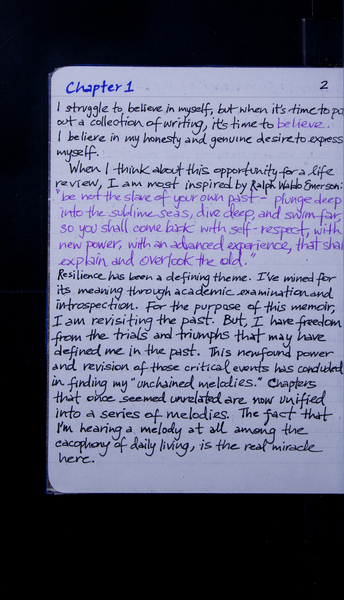 Chapter 1 2
I struggle to believe in myself, but when it's time to
out a collection of writing, it's time to believe.
I believe in my honesty and genuine desire to express
myself.
When I think about this opportunity for a life
review, I am most inspired by Ralph Waldo Emerson:
"be not the slave of your own past - plunge deep
into the sublime seas, dive deep, and swim far,
so you shall come back with self-respect, with
new power, with an advanced experience, that shal
explain and overlook the old."
Resilience has been a defining theme. I've mined for
its meaning through academic examination and
introspection. For the purpose of this memoir,
I am revisiting the past. But, I have freedom
from the trials and triumphs that may have
defined me in the past. This newfound power
and revision of those critical events has concluded
in finding my "unchained melodies." Chapters
that once seemed unrelated are now unified
into a series of melodies. The fact that
I'm hearing a melody at all among the
cacophony of daily living, is the real miracle
here.